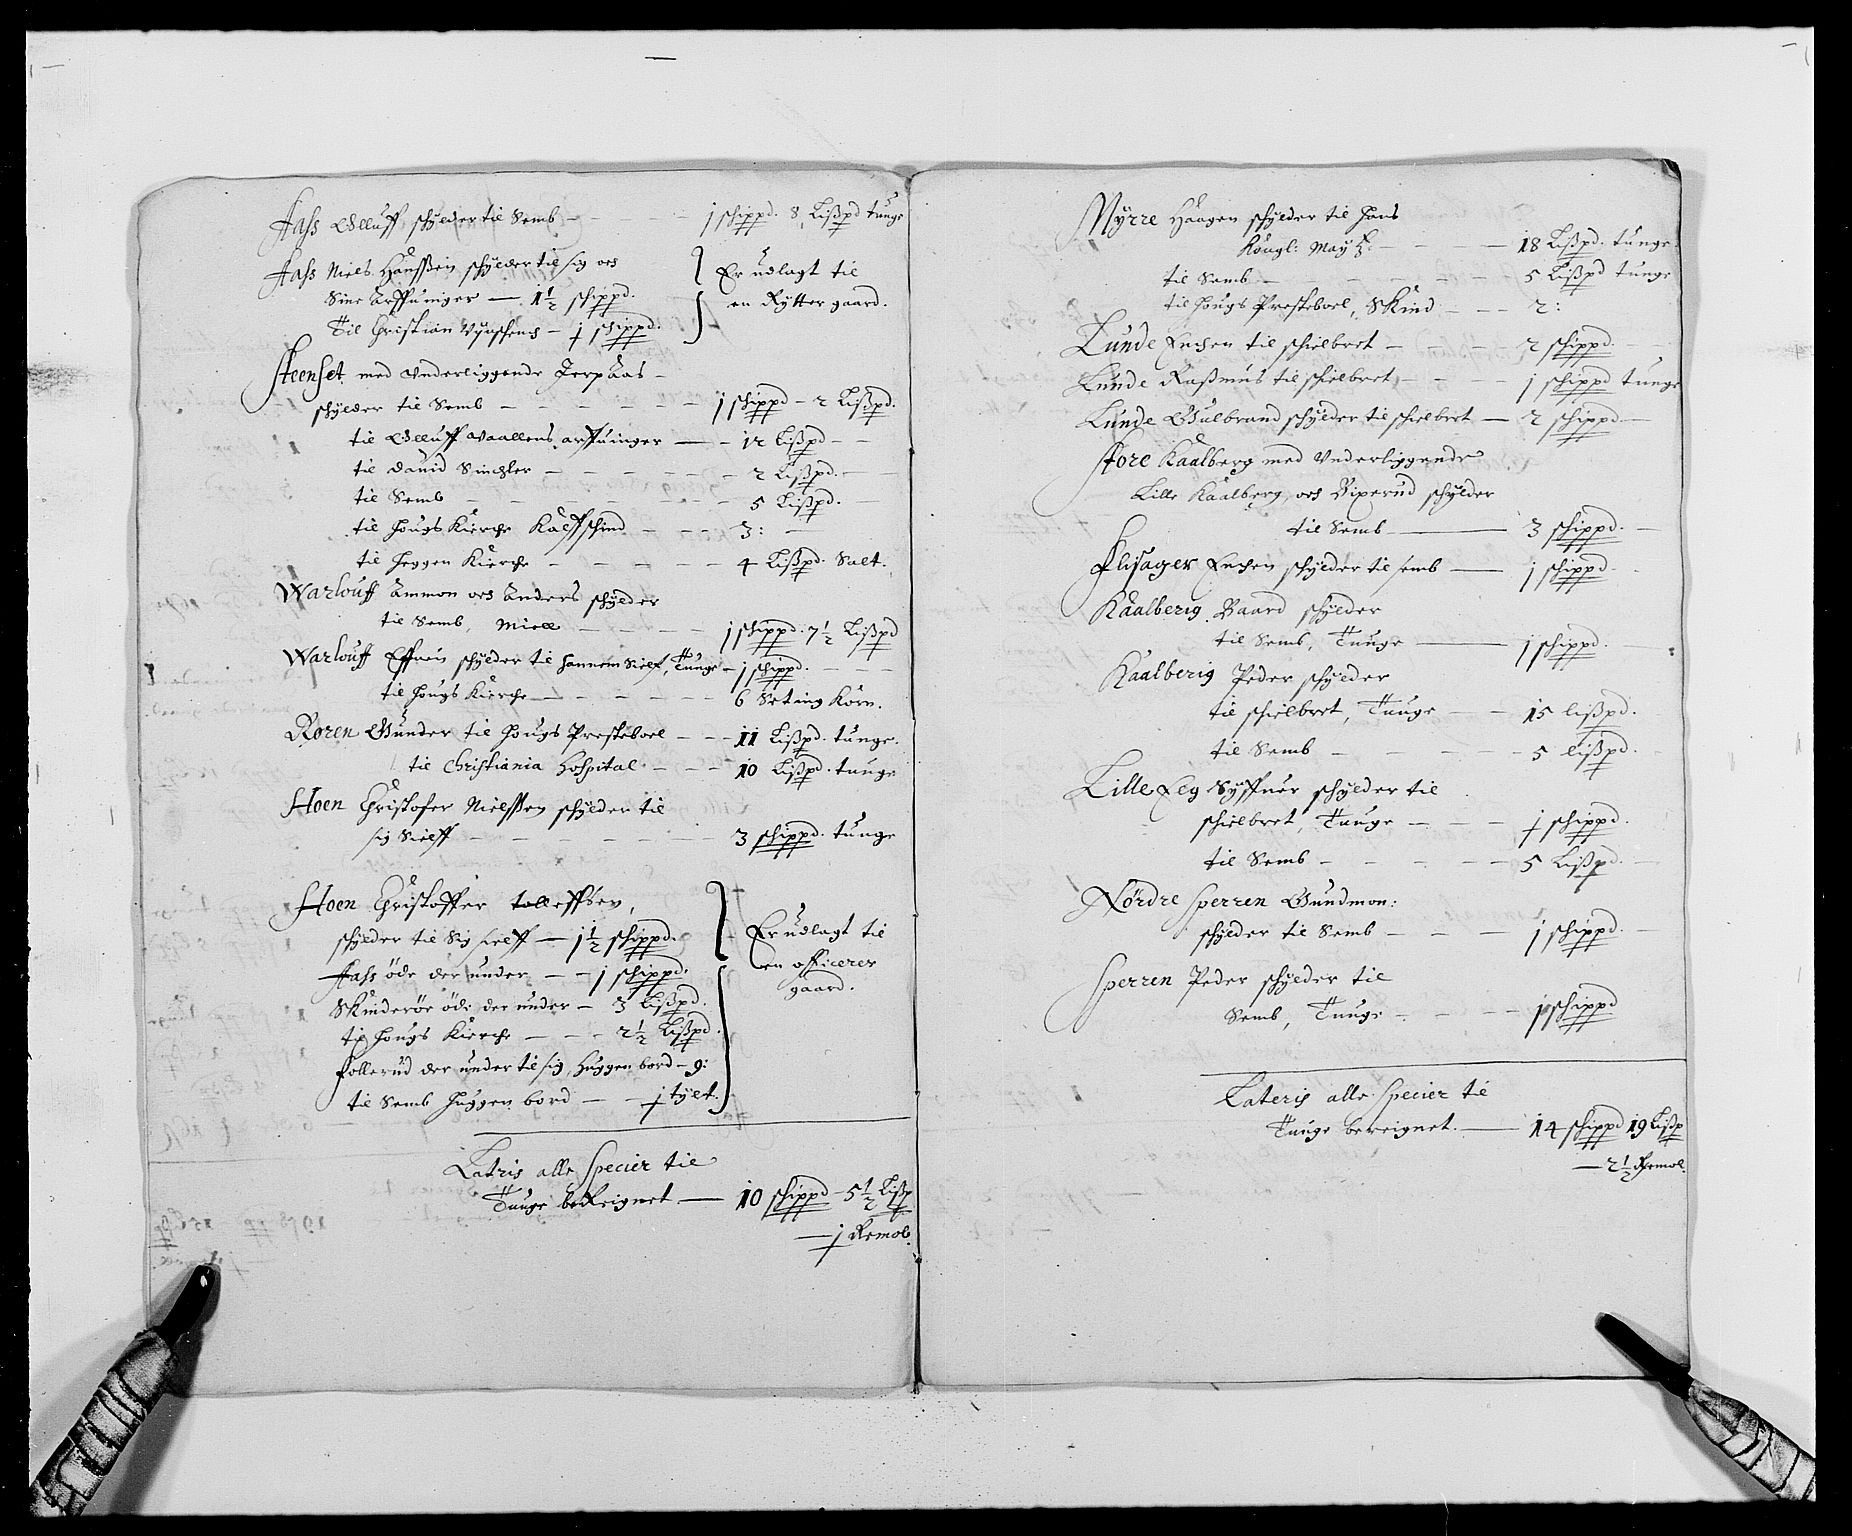 Aass Olluff schylder til Semb – – – j schippd. 8 Lißpd tunge
Aass Niels Hanssen schylder til sig och
Sine Arffuinger — 1½ schippd.
Til Christian – j schippd.
Er udlagt til
en Rytter gaard.
Steenset med underliggende
schylder til Semb – – – – j schippd – 2 Lißpd.
til Olluff Vaallens arffuinger — 12 Lißpd – –
til David Sinchler – – – – 2 Lißpd.
til Semb – – – – 5 Lißpd.
til Hougs Kierche Kalffschind – – – 3: –
til Heggen Kierche – – – – 4 Lißpd. Salt.
Warlouff Ammon och Anders schylder
til Semb, Miell – – – j schippd. 7½ Lißpd
Warlouff schylder til hannem Sielf, Tunge – j schippd. – –
til Hougs Kierche – – – – 6 Seting Korn.
Roren Gunder til Hougs Presteboel – – 11 Lißpd. tunge.
til Christiania Hospital – – – 10 Lißpd. tunge
Hoen Christofer Nielssen schylder til
sig Sielff – – – – – 3 schippd. tunge
Hoen Christoffer tolleffsen,
schylder til Sig sielff — j½ schippd.
Aass öde der under – – j schippd.
Skinderöe öde der under – 3 Lißpd.
til Hougs Kierche – – – 2½ Lißpd.
follerud der under til sig, Huggen bord – 9:
til Semb huggen bord – – j tylt.
Er udlagt til
en officerer
gaard.
Latris alle Specier til
Tunge bereignet — 10 schippd – 5½ Lißp
— j Remol.
Myrre Haagen schylder til Hans
Kongl: May – – – – 18 Lißpd. tunge
til Semb – – – – 5 Lißpd tunge
til Hougs Presteboel, Skind – – – 2:
Lunde Erichen til schielbret – – – – 2 schippd.
Lunde Rasmus til schielbret – – – – j schippd tunge
Lunde Gulbrand schylder til schielbret — 2 schippd
Store Kaalberg med underliggende
Lille Kaalberg, och schylder
til Semb — 3 schippd.
Flisager Erichen schylder til semb — j schippd
Kaalberig Baard schylder
til Semb, Tunge — j schippd.
Kaalberig Peder schylder
til schielbret, Tunge – – 15 lißpd.
til Semb – – – – 5 lißpd.
Lille Eeg Syffuer schylder til
schielbret, Tunge – – – j schippd.
til Semb – – – – 5 Lißpd.
Nørdre Sperren Gundmon:
schylder til Semb – – – j schippd.
Sperren Peder schylder til
Semb, Tunge – – – – j schippd
Lateris alle Specier til
Tunge bereignet. — 14 schippd 19 Lißp
— 2½ Remol.